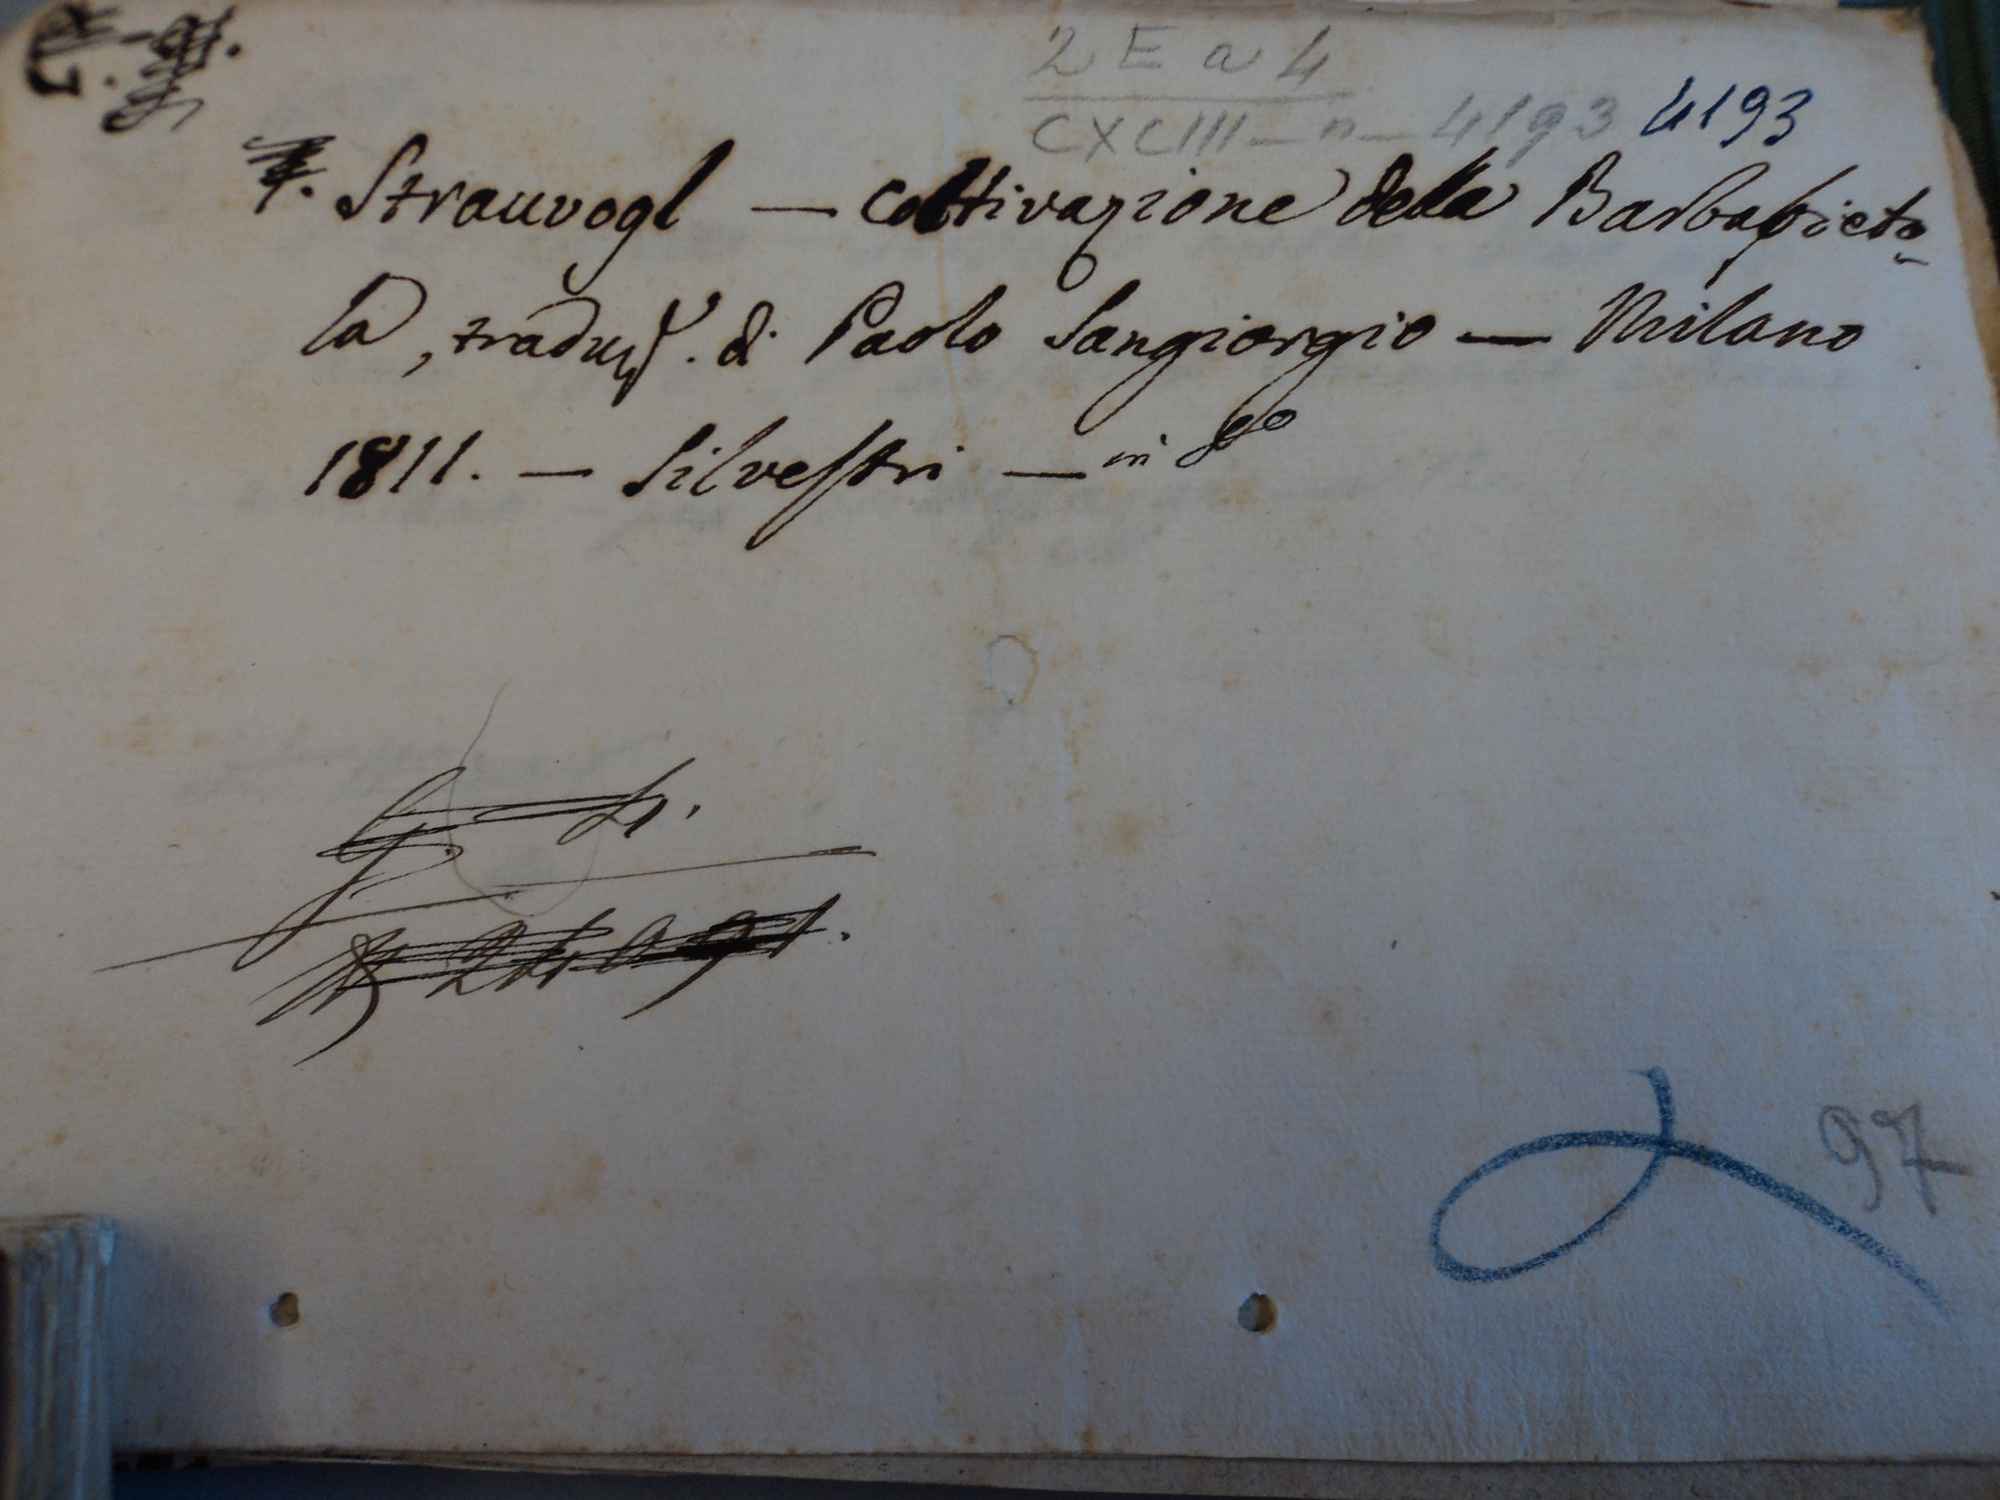 2 E a 4
CXCIII - n - 4193 4193
Strauvogl — coltivazione della Barbabieto-
la, traduz. di Paolo Sangiorgio — Milano
1811. — Silvestri — in 8o
97